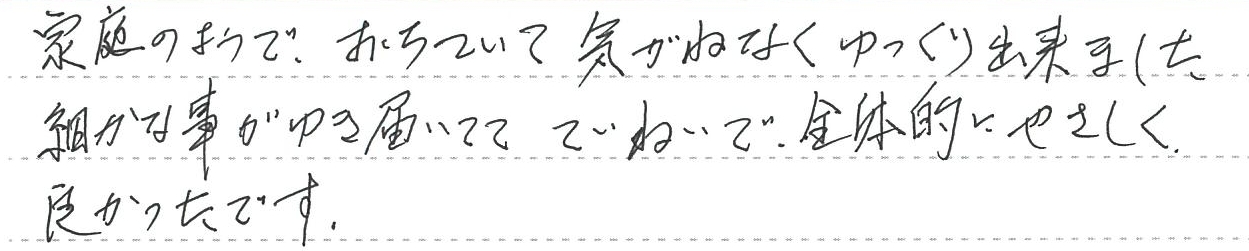 家庭のようで、おちついて気がねなくゆっくり出来ました
細かな事がゆき届いてて ていねいで、全体的にやさしく、
良かったです。